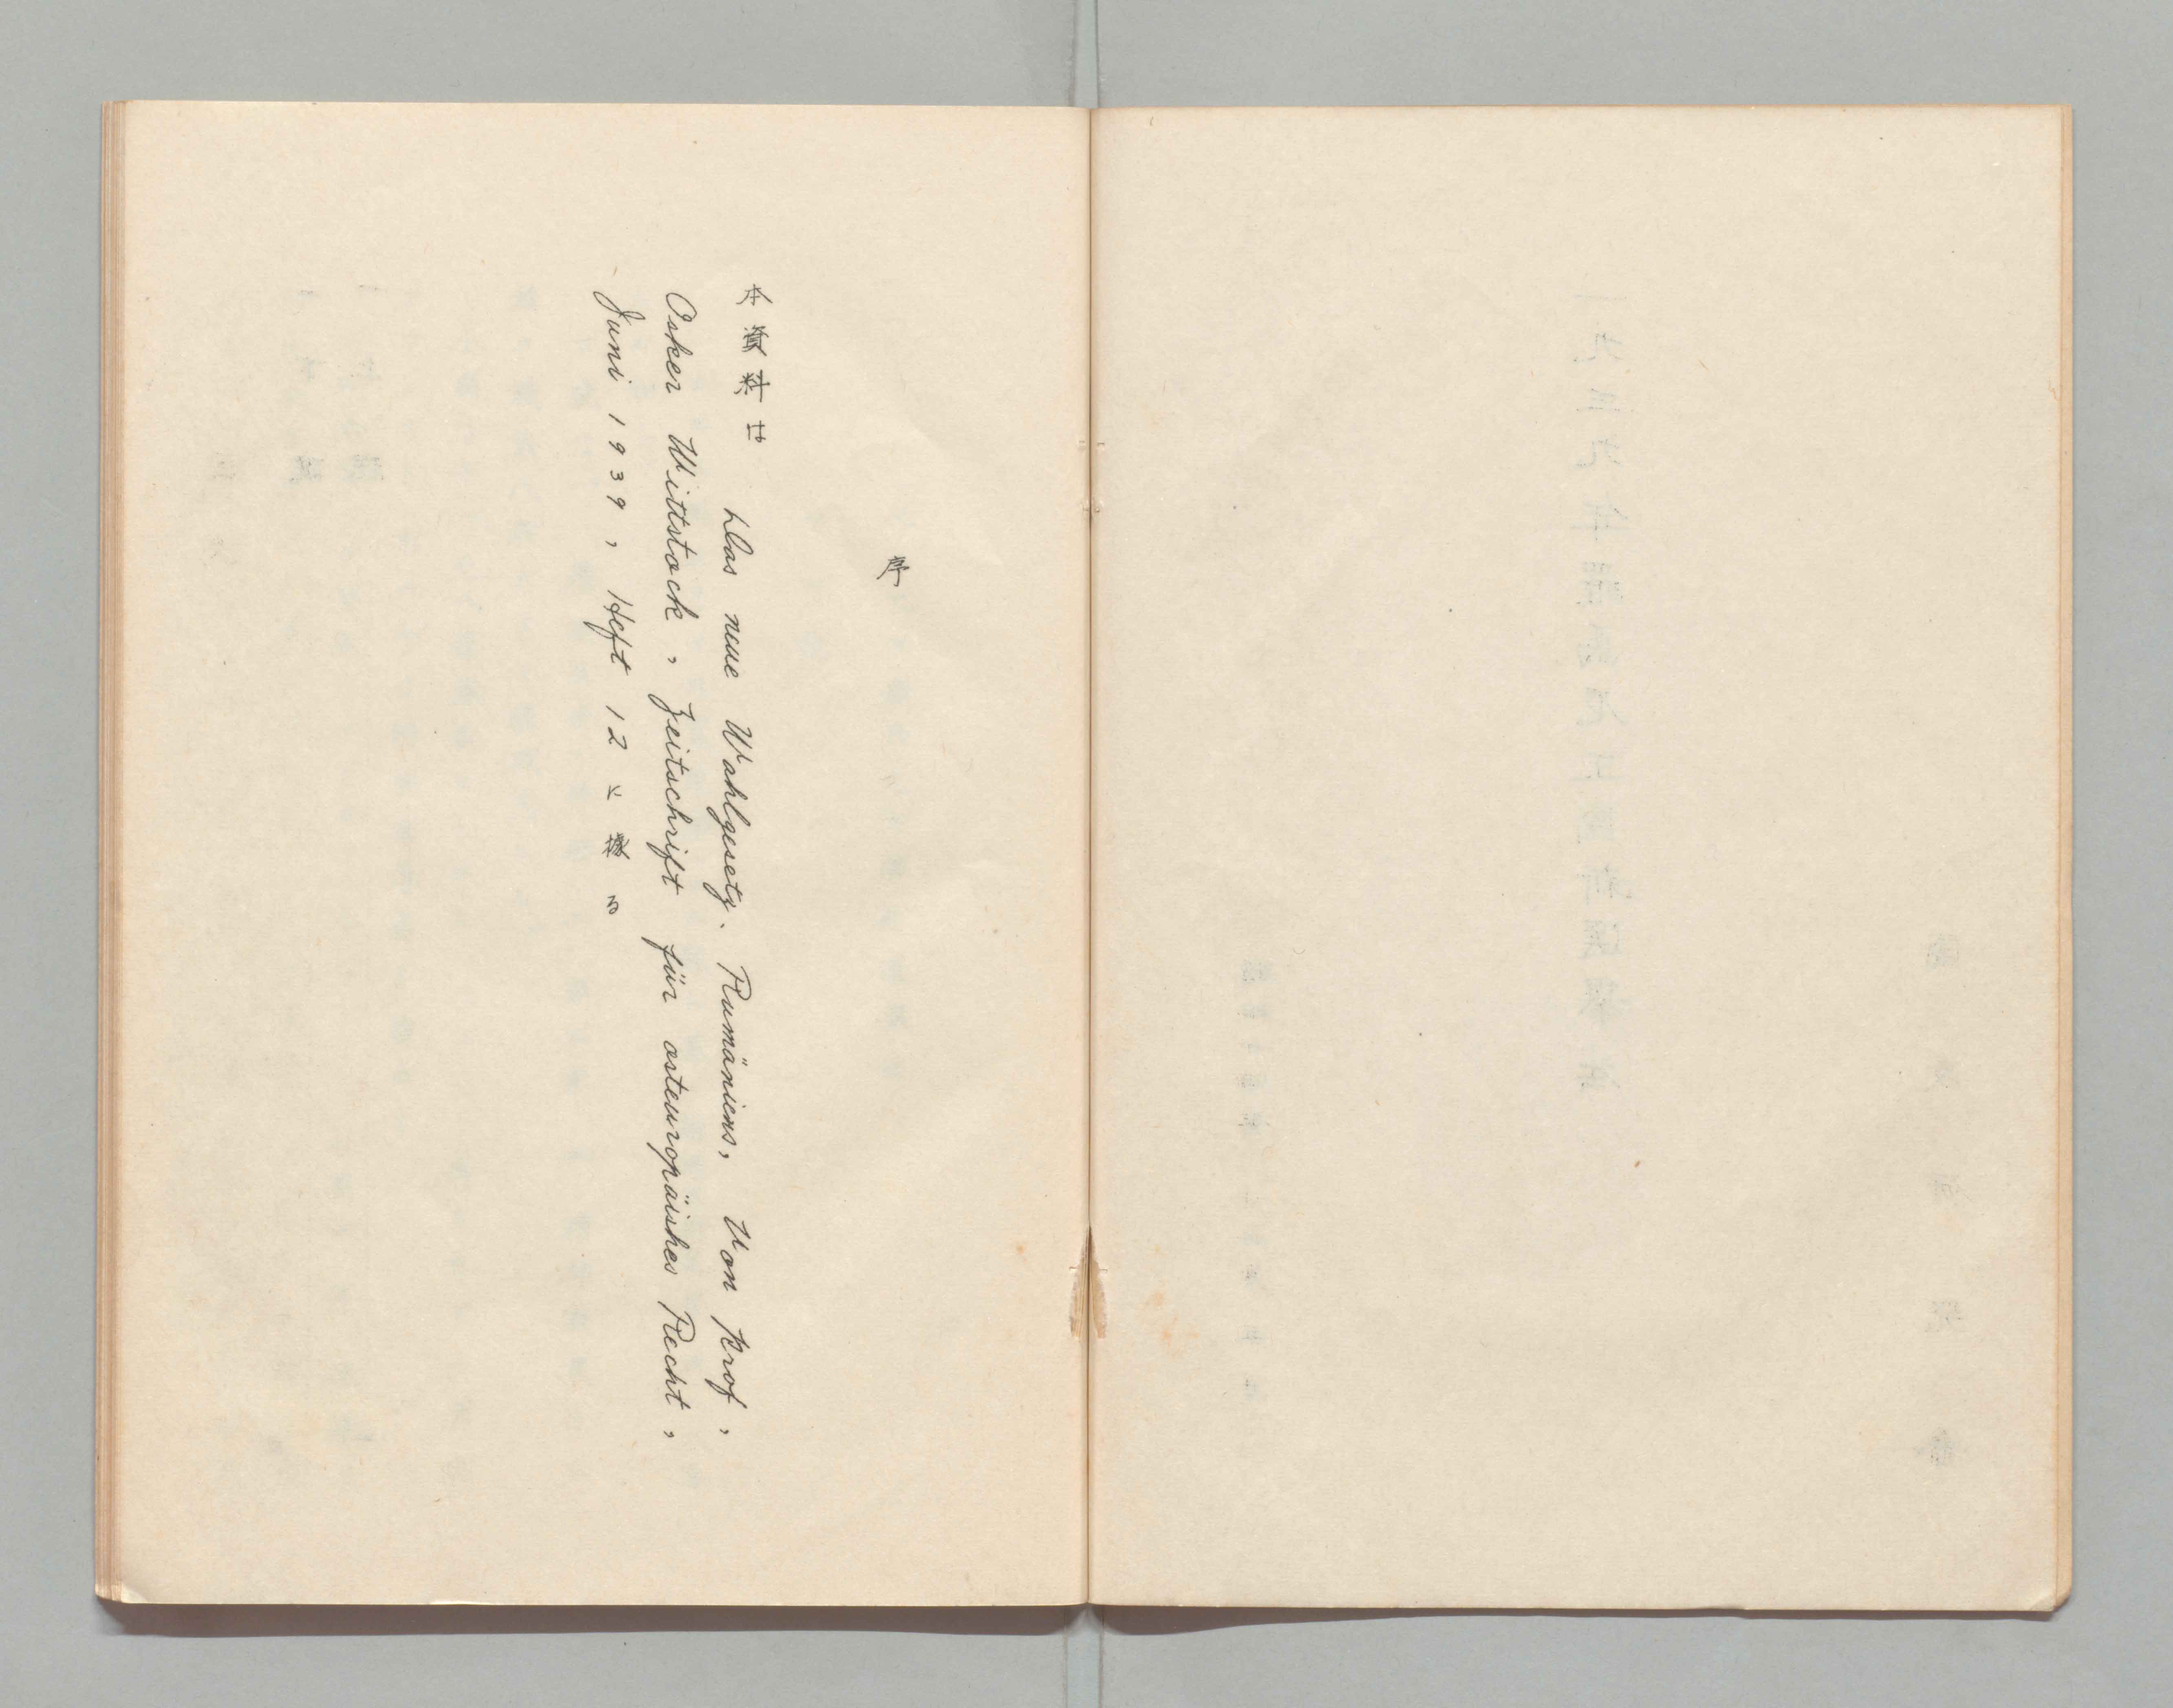 序
本資料は Das neue Wahlgesetz. Rumäniens, Von Prof,
Osker Wittstock, Zeitschrift für osteuropäishes Recht,
Juni 1939, Heft 12 に據る